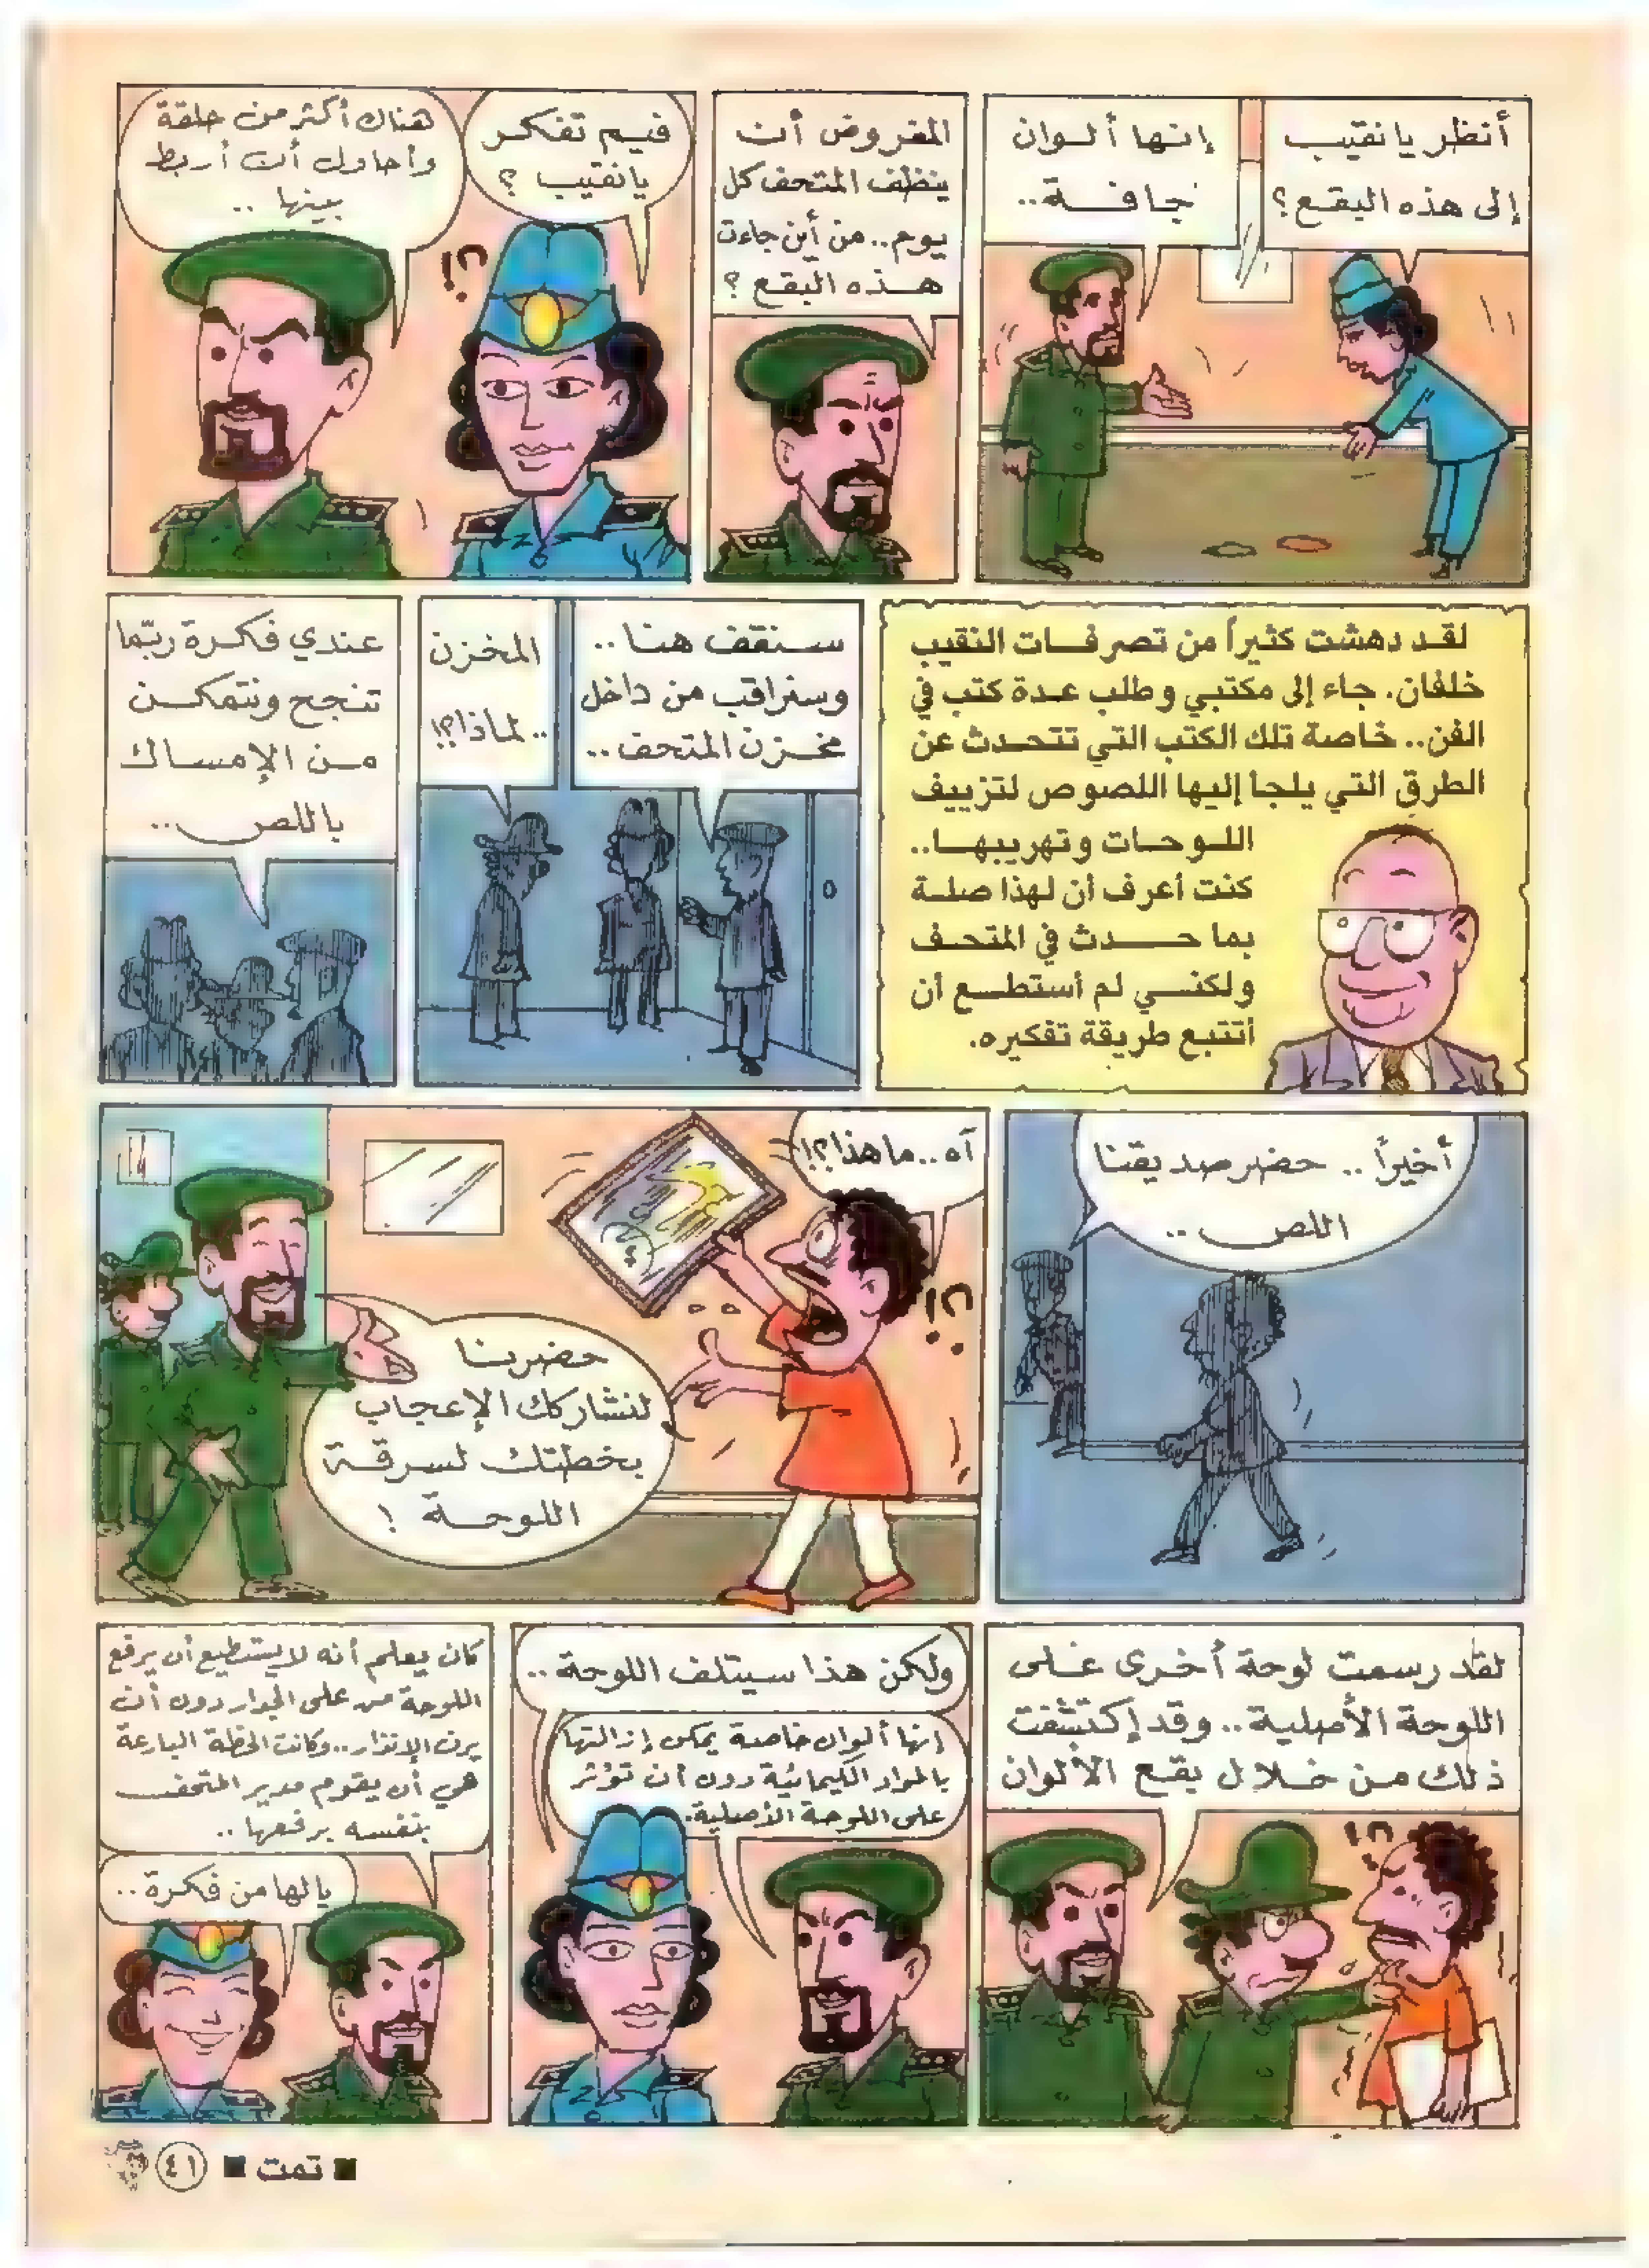 أنظر يا نقيب
إلى هذه البقع؟
إنها ألوان
جافة..
المفروض أن
ينظف المتحف كل
يوم.. من أين جاءت
هذه البقع؟
فيم تفكر
يا نقيب؟
هناك أكثر من حلقة
وأحاول أن أربط
بينها..
؟!
لقد دهشت كثيراً من تصرفات النقيب
خلفان. جاء إلى مكتبي وطلب عدة كتب في
الفن.. خاصة تلك الكتب التي تتحدث عن
الطرق التي يلجأ إليها اللصوص لتزييف
اللوحات وتهريبها..
كنت أعرف أن لهذا صلة
بما حدث في المتحف
ولكني لم أستطع أن
أتتبع طريقة تفكيره.
سنقف هنا..
وسنراقب من داخل
مخزن المتحف..
المخزن
.. لماذا؟!
عندي فكرة ربّما
تنجح ونتمكن
من الإمساك
باللص..
أخيراً.. حضر صديقنا
اللص..
آه.. ما هذا؟!
؟!
حضرنا
لنشاركك الإعجاب
بخطتك لسرقة
اللوحة!
لقد رسمت لوحة أخرى على
اللوحة الأصلية.. وقد إكتشفت
ذلك من خلال بقع الألوان
؟!
ولكن هذا سيتلف اللوحة..
إنها ألوان خاصة يمكن إزالتها
بالمواد الكيمائية دون أن تؤثر
على اللوحة الأصلية.
كان يعلم أنه لا يستطيع أن يرفع
اللوحة من على الجدار دون أن
يرن الإنذار.. وكانت الخطة البارعة
هي أن يقوم مدير المتحف
بنفسه برفعها..
يا لها من فكرة..
■ تمت ■ ٤١